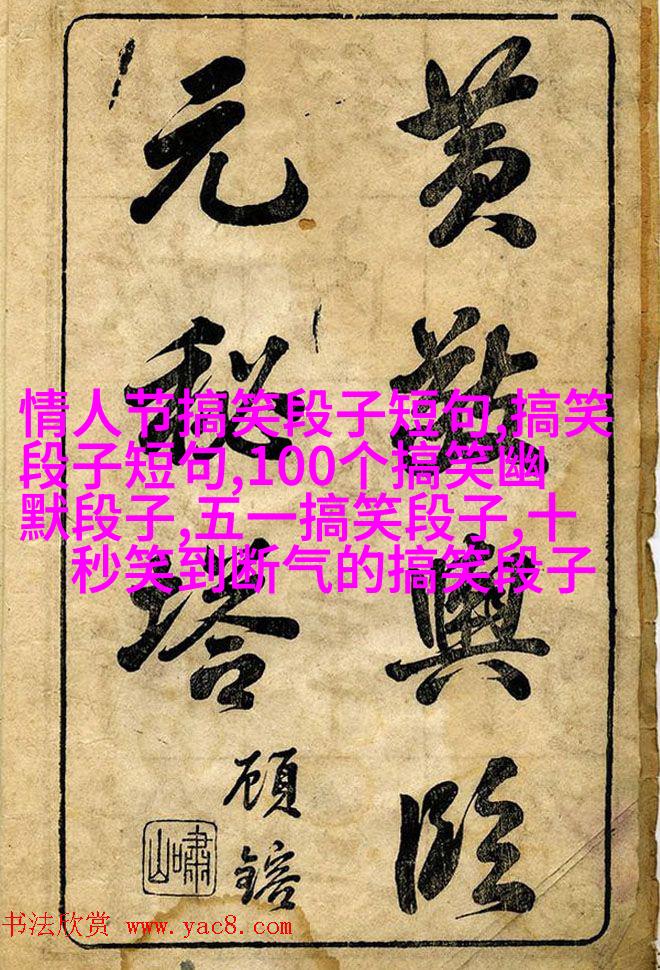 黄敬輿臨
元秘塔
顧鎔
嘯山
情人节搞笑段子短句,搞笑
段子短句,100个搞笑幽
默段子,五一搞笑段子,十
秒笑到断气的搞笑段子
书法欣赏 www.yac8.com